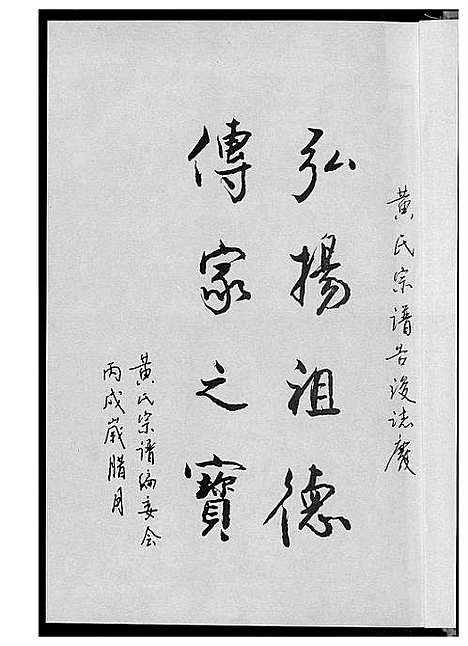 黄氏宗谱告竣志庆
弘揚祖德
傳家之寶
黄氏宗谱编委会
丙戌嵗腊月